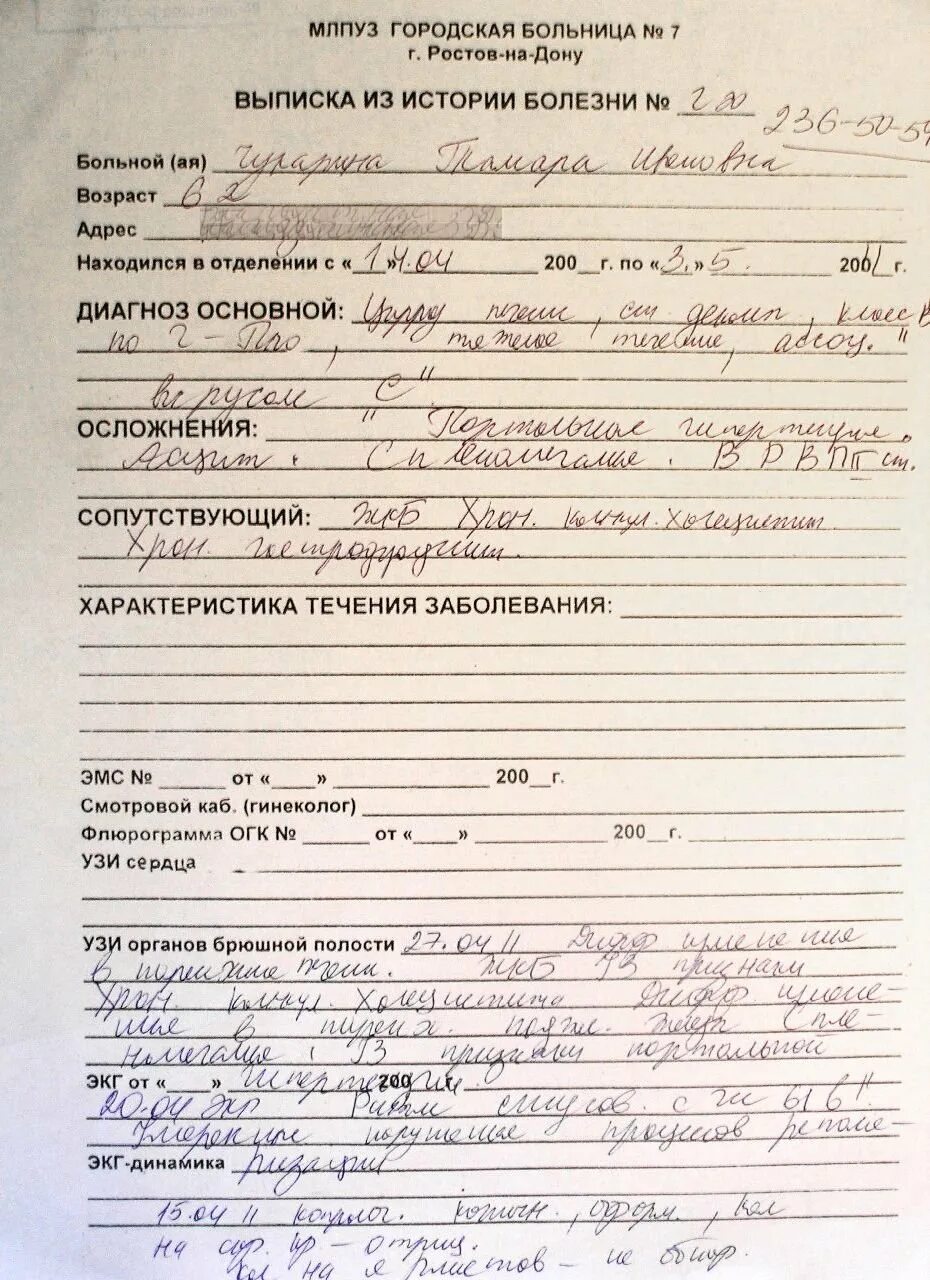 МЛПУЗ ГОРОДСКАЯ БОЛЬНИЦА № 7
г. Ростов-на-Дону
ВЫПИСКА ИЗ ИСТОРИИ БОЛЕЗНИ №
236-50-5
Больной (ая) Чукарина Тамара Ивановна
Возраст 62
Адрес
Находился в отделении с «14».04 200 г. по «3.» 5. 2001 г.
ДИАГНОЗ ОСНОВНОЙ: Цирроз печени, ст. декомп, класс В
по Ч-Пью, тяжелое течение, ассоц. "
вирусом С"
ОСЛОЖНЕНИЯ: " Портальная гипертензия.
Асцит. Спленомегалия. ВРВП II ст.
СОПУТСТВУЮЩИЙ: ЖКБ Хрон. калькул. холецистит.
Хрон. гастродуоденит.
ХАРАКТЕРИСТИКА ТЕЧЕНИЯ ЗАБОЛЕВАНИЯ:
ЭМС № от « » 200 г.
Смотровой каб. (гинеколог)
Флюрограмма ОГК № от « » 200 г.
УЗИ сердца
УЗИ органов брюшной полости 27.04 11 Дифф изменения
в паренхиме печени. ЖКБ УЗ признаки
Хрон. калькул. холецистита Дифф измене-
ния в паренх. поджел. железы Спле-
номегалия. УЗ признаки портальной
ЭКГ от « » гипертензии 200 г.
20.04 ЭКГ Ритм синусов. с чсс 61 б"
Умеренные нарушения процессов реполя-
ЭКГ-динамика ризации
15.04 11 копролог. коричн., оформ., кал
на скр. кр - отриц.
Кал на я глистов - не обнар.